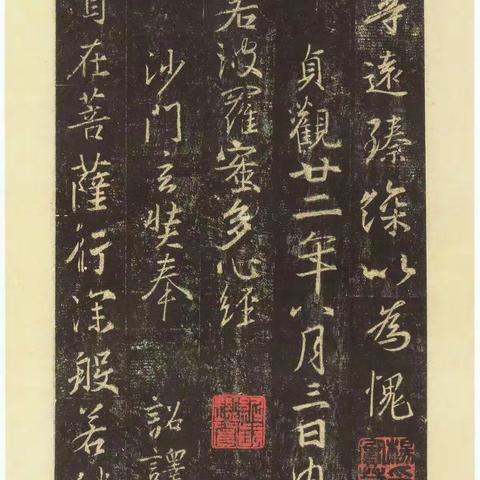 遠臻深以為愧
貞觀廿二年八月三日內
若波羅蜜多心經
沙門玄奘奉 詔譯
自在菩薩行深般若